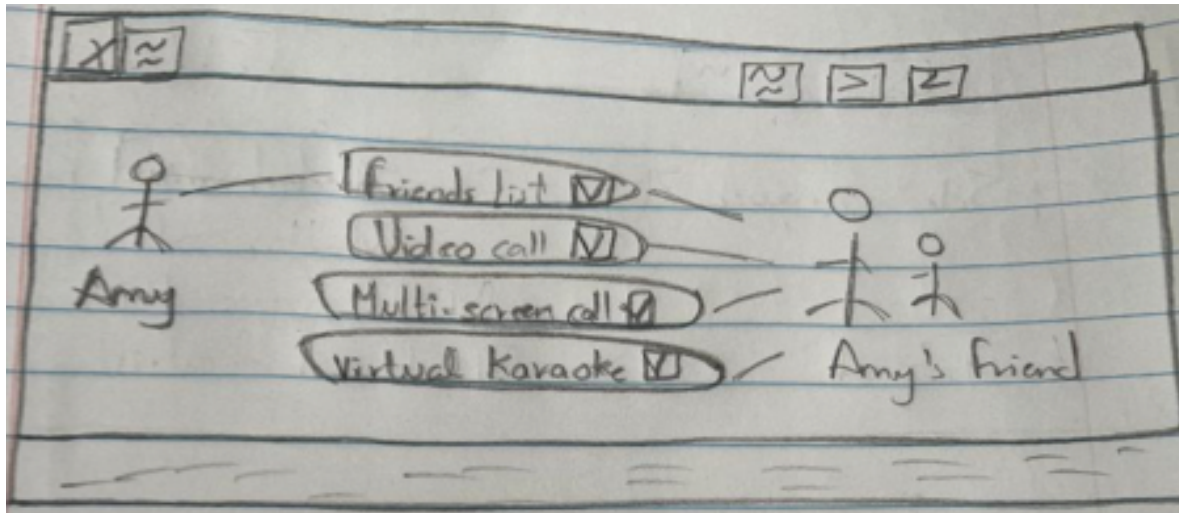 X ≈
≈ > <
Friends list
Video call
Multi-screen call
Virtual Karaoke
Amy
Amy's friend